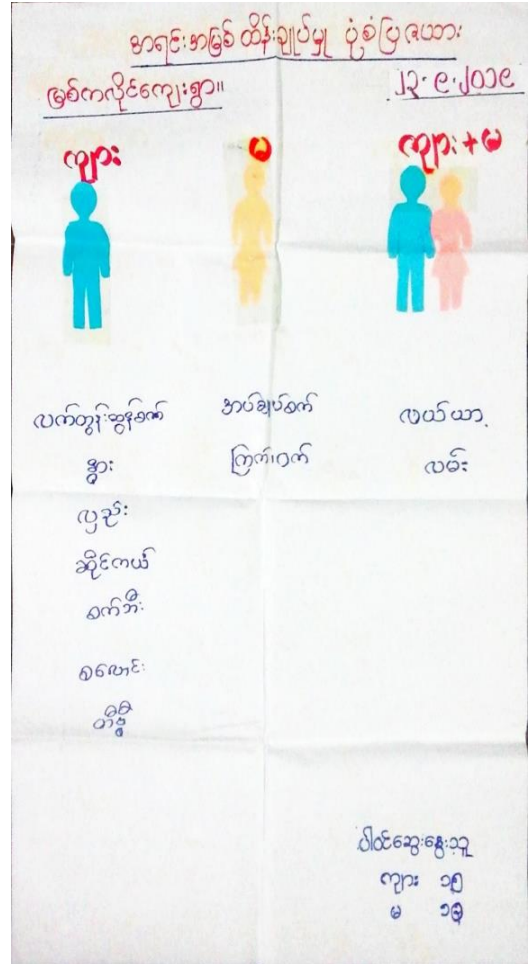 အရင်းအမြစ် ထိန်းချုပ်မှု ပုံစံပြဇယား
မြစ်ကလိုင်ကျေးရွာ။
၂၃.၉.၂၀၁၉
ကျား
မ
ကျား+မ
လက်တွန်းထွန်စက်
နွား
လှည်း
ဆိုင်ကယ်
စက်ဘီး
စလောင်း
တီဗွီ
အပ်ချုပ်စက်
ကြက်၊ဝက်
လယ်ယာ
လမ်း
ပါဝင်ဆွေးနွေးသူ
ကျား ၁၅
မ